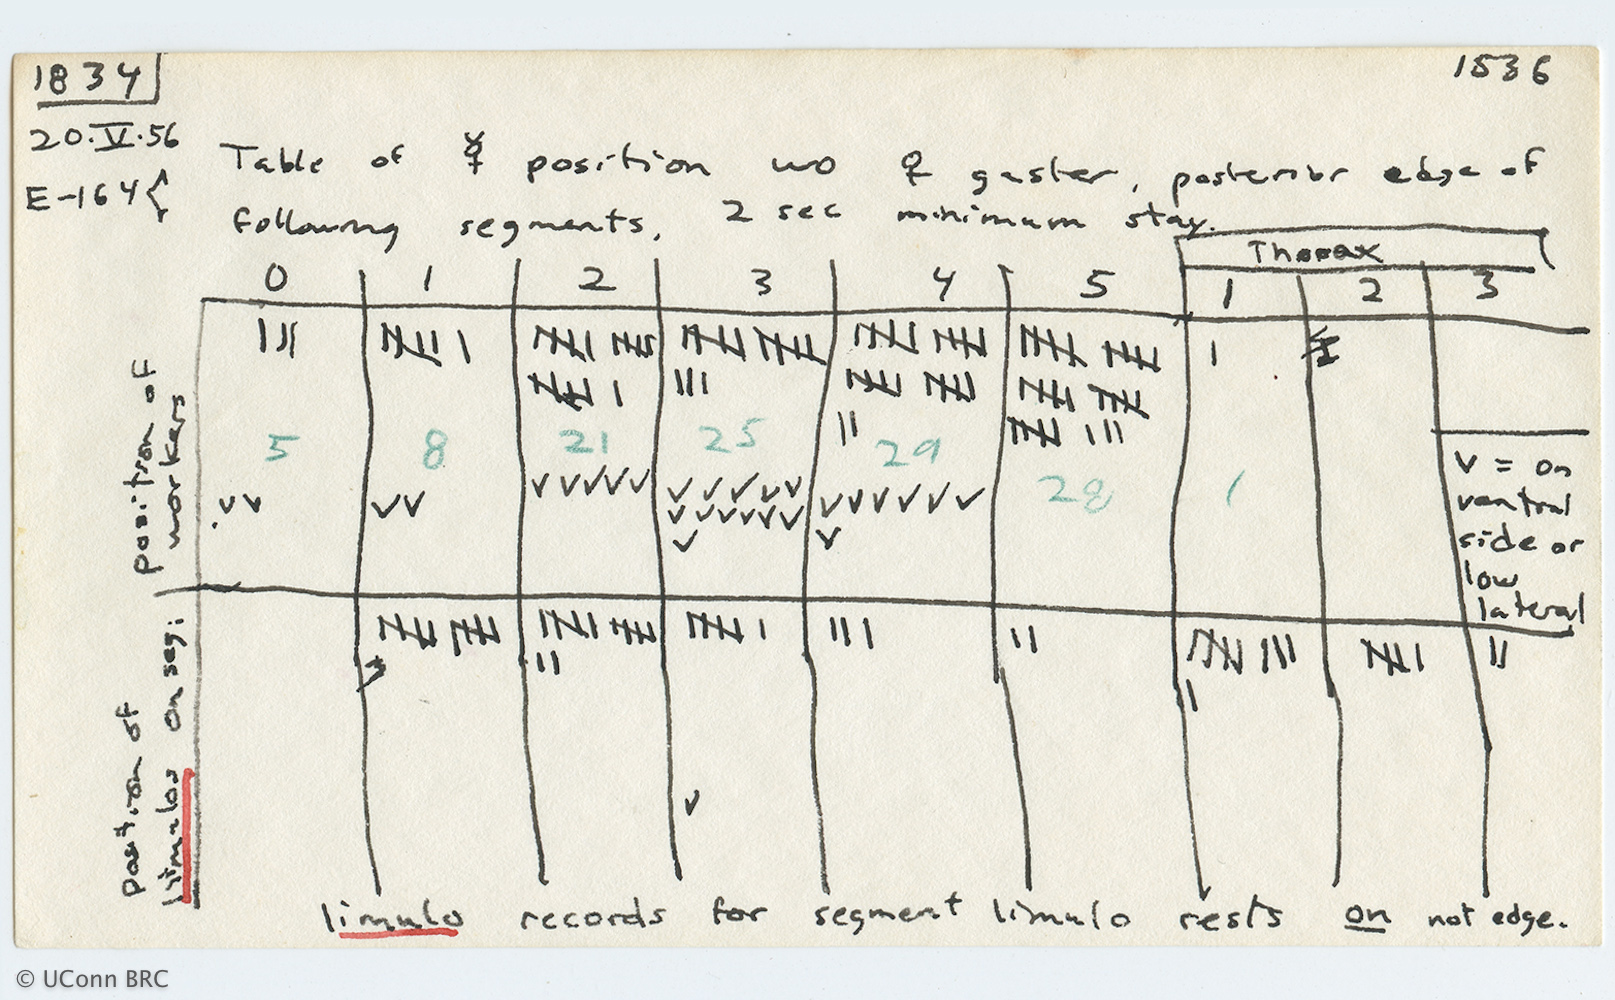 1834 1536
20.V.56
E-164{
Table of ☿ position wo ♀ gaster, posterior edge of
following segments, 2 sec minimum stay.
Thorax
0 1 2 3 4 5 1 2 3
position of
workers
5 8 21 25 29 28 1
v v v v v v v v v
v v v v v v v v v v v v
v v v v v v v
v = on
ventral
side or
low
lateral
position of
limulos on seg:
v
limulo records for segment limulo rests on not edge.
© UConn BRC